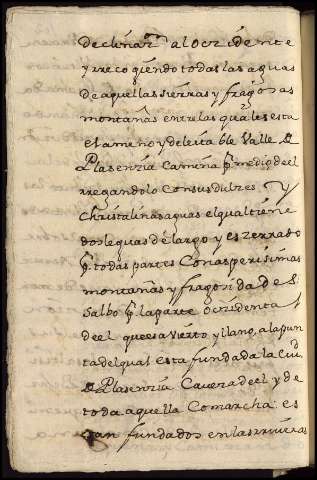 declinar al ocçidente
y rrecogiendo todas las aguas
de aquellas sierras y fragosas
montañas entre las quales esta
el ameno y deleitable Valle de
Plasenzia Camina por medio del
rregandolo Con sus dulzes y
christalinas aguas el qual tiene
dos leguas de largo y es zerrado
por todas partes Con asperisimas
montañas y fragorida de s
salbo por la parte ocçidental
deel que es aVierto y llano, a la pun
ta del qual esta fundada la Ciud
de Plasenzia Cavera del y de
toda aquella Comarcha es
tan fundados en las rriveras